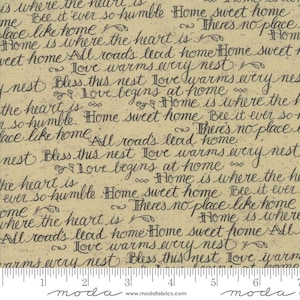 Bee it ever so humble Home sweet home
place like home There's no place
Home is where the heart is
home All roads lead home Home sweet home
Love warms every nest
nest Bless this nest Love warms every nest
Love begins at home
the heart is Home is where the h
so humble Home sweet home Bee it ever so hum
ace like home There's no place
All roads lead home
ns every nest Bless this nest Love warms every n
Love begins at home
the heart is Home is where
t ever so humble Home sweet home Bee it ever s
place like home There's no pla
where the heart is Home is where
All roads lead home Home sweet home All ro
Love warms every nest
Bless this nest Love warms every nest Bless th
1 2 3 4 5 6 7
moda www.modafabrics.com moda